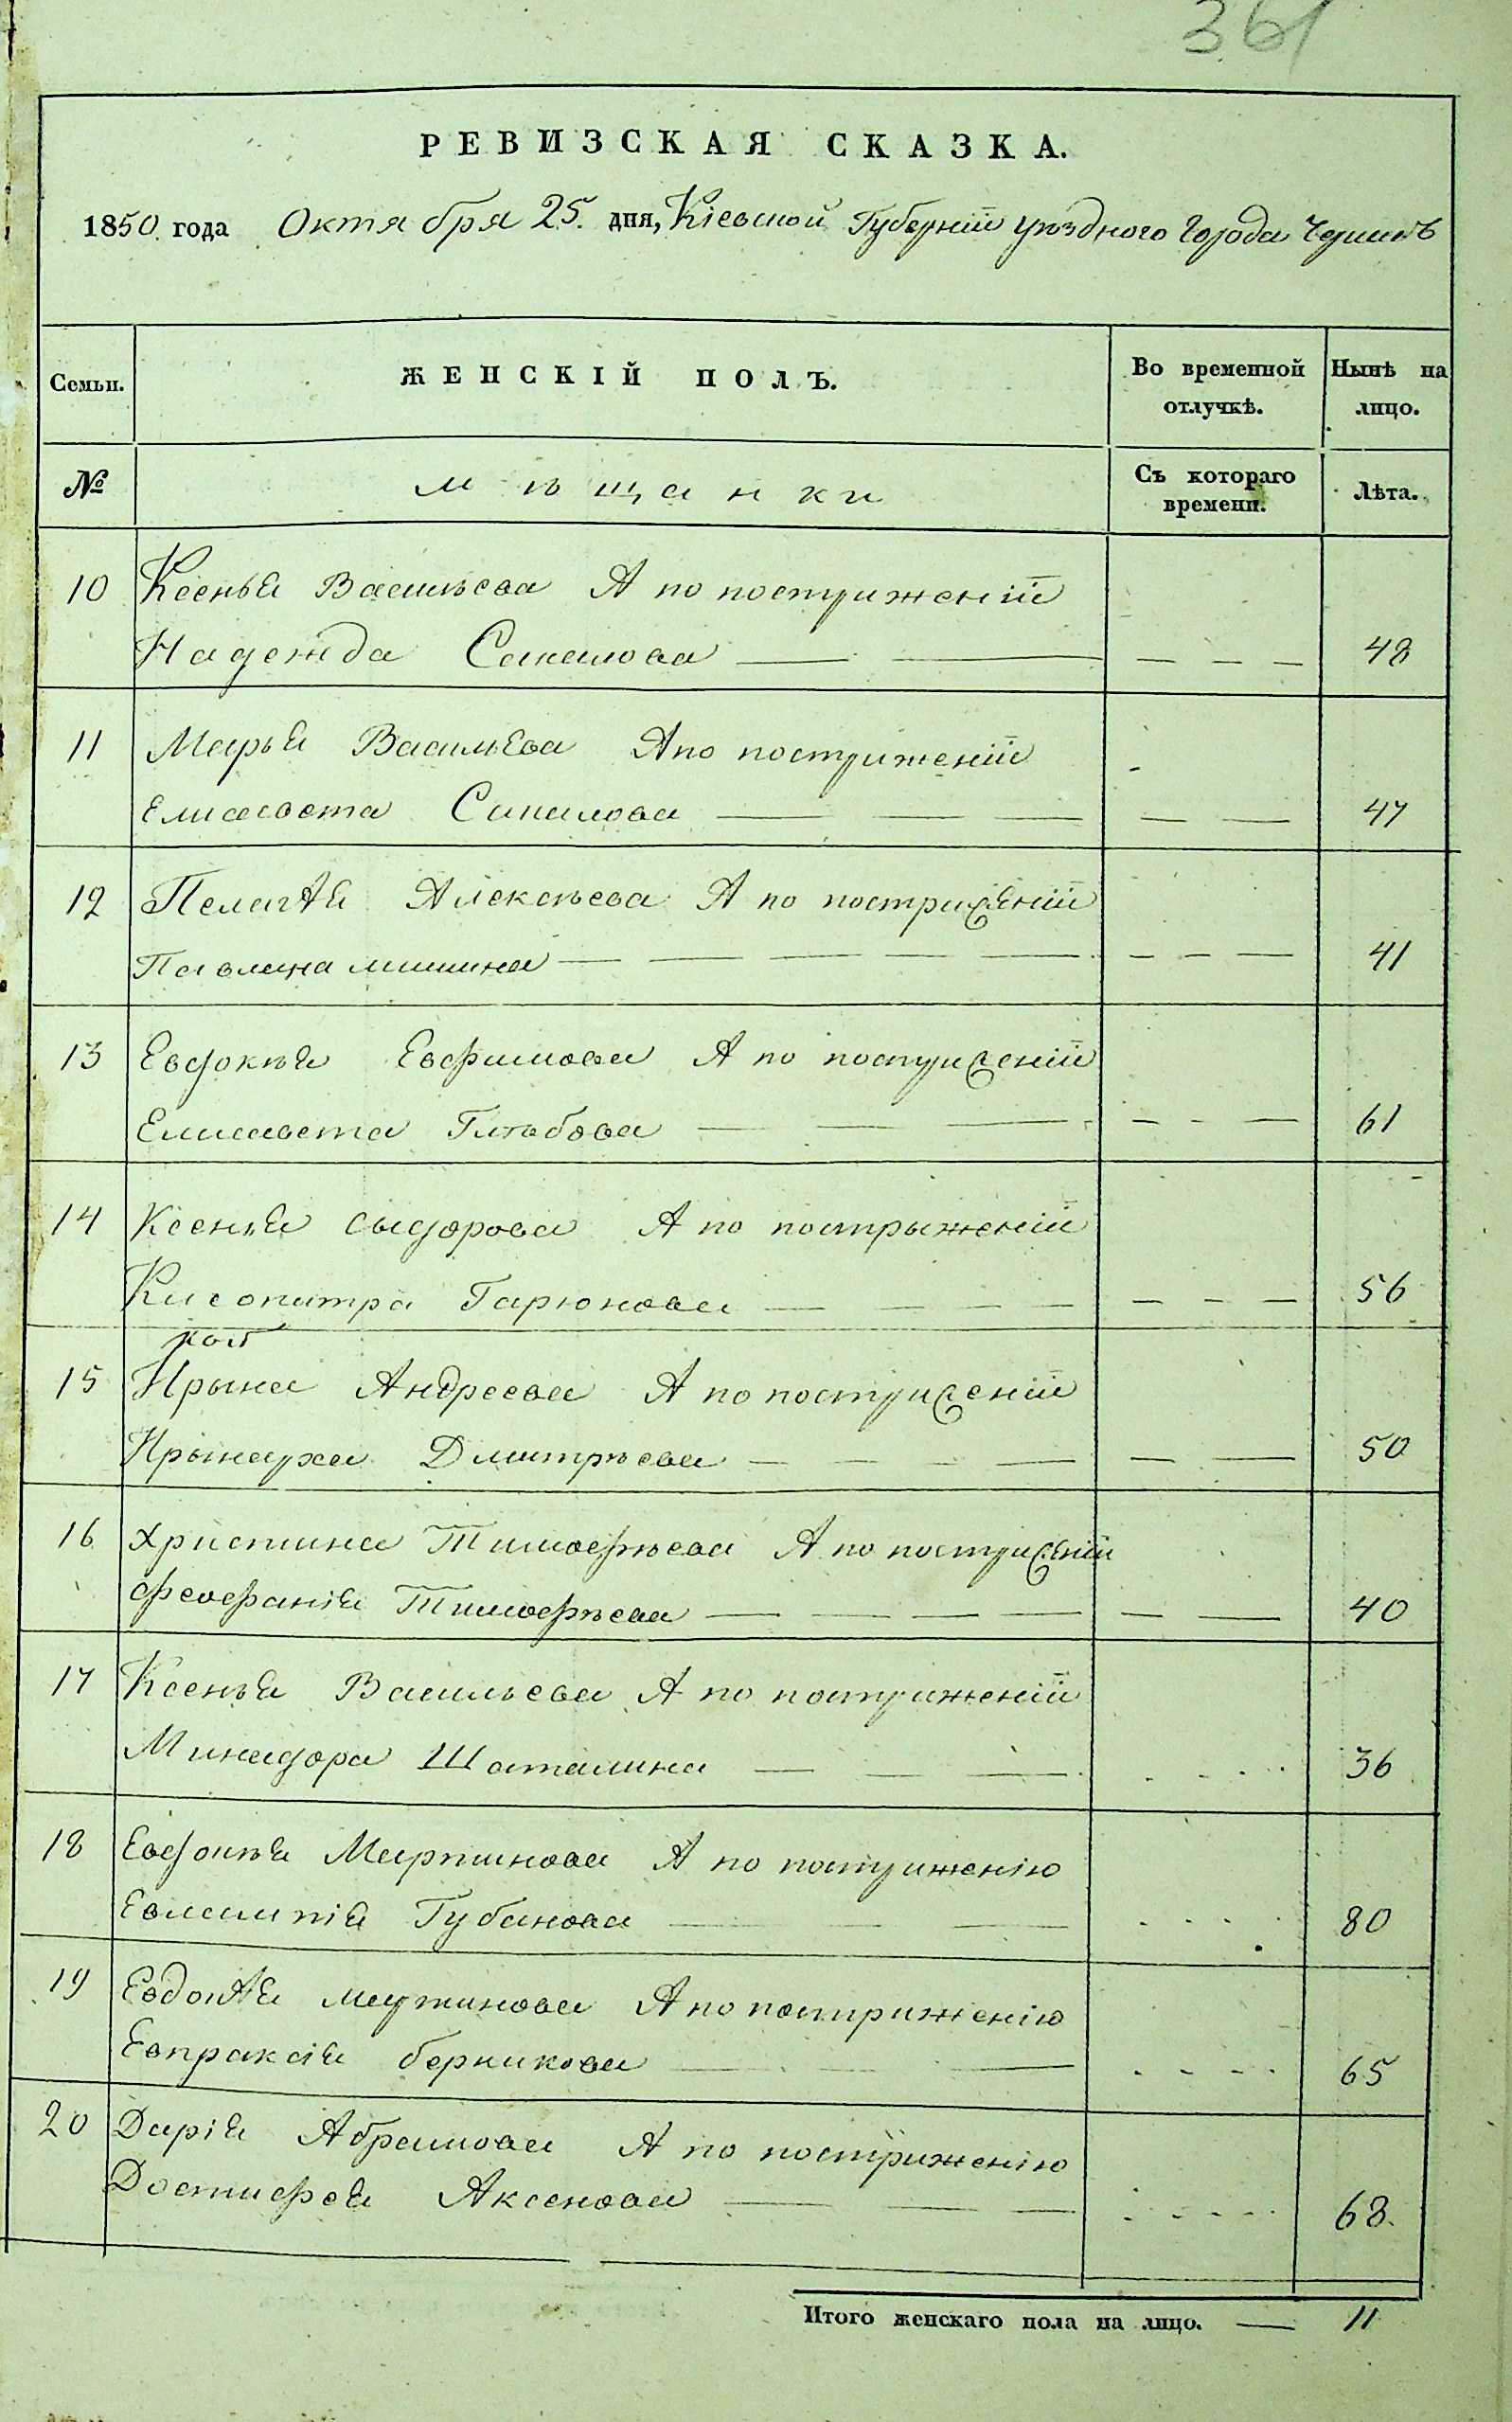 361
РЕВИЗСКАЯ СКАЗКА.
1850 года Октября 25. дня, Кіевской Губерніи уѣзднаго Города
Семьи. ЖЕНСКІЙ ПОЛЪ. Во временной отлучкѣ. Нынѣ на лицо.
№ мѣщанки Съ котораго времени. Лѣта.
10 Ксенья Василѣева А по постриженіи
Надежда Сакалова — — — — — 48
11 Марья Васильева А по постриженіи
Елисавета Сакалова — — — — — 47
12 Пелагѣя Алексѣева А по постриженіи
Павлина мишина — — — — — — — — 41
13 Евдокѣя Евфимова А по постриженіи
Елисавета Глѣбова — — — — — — 61
14 Ксенья сыдорова А по пострыженіи
Клеопатра Гарюнова — — — — — — — 56
15 Ирына Андреева А по постриженіи
Дмитрѣева — — — — — — 50
16 христина Тимофѣева А по постриженіи
феофанія Тимофѣева — — — — — — 40
17 Ксенья Васильева А по постриженіи
Минадора Шаталина — — — 36
18 Евдокѣя Мартинова А по постриженію
Евлампія Губанова — — — 80
19 Евдокѣя мартинова А по постриженію
Евпраксія берникова — — — 65
20 Дарія Абрамова А по постриженію
Достифея Аксенова — — — 68.
Итого женскаго пола на лицо. — 11